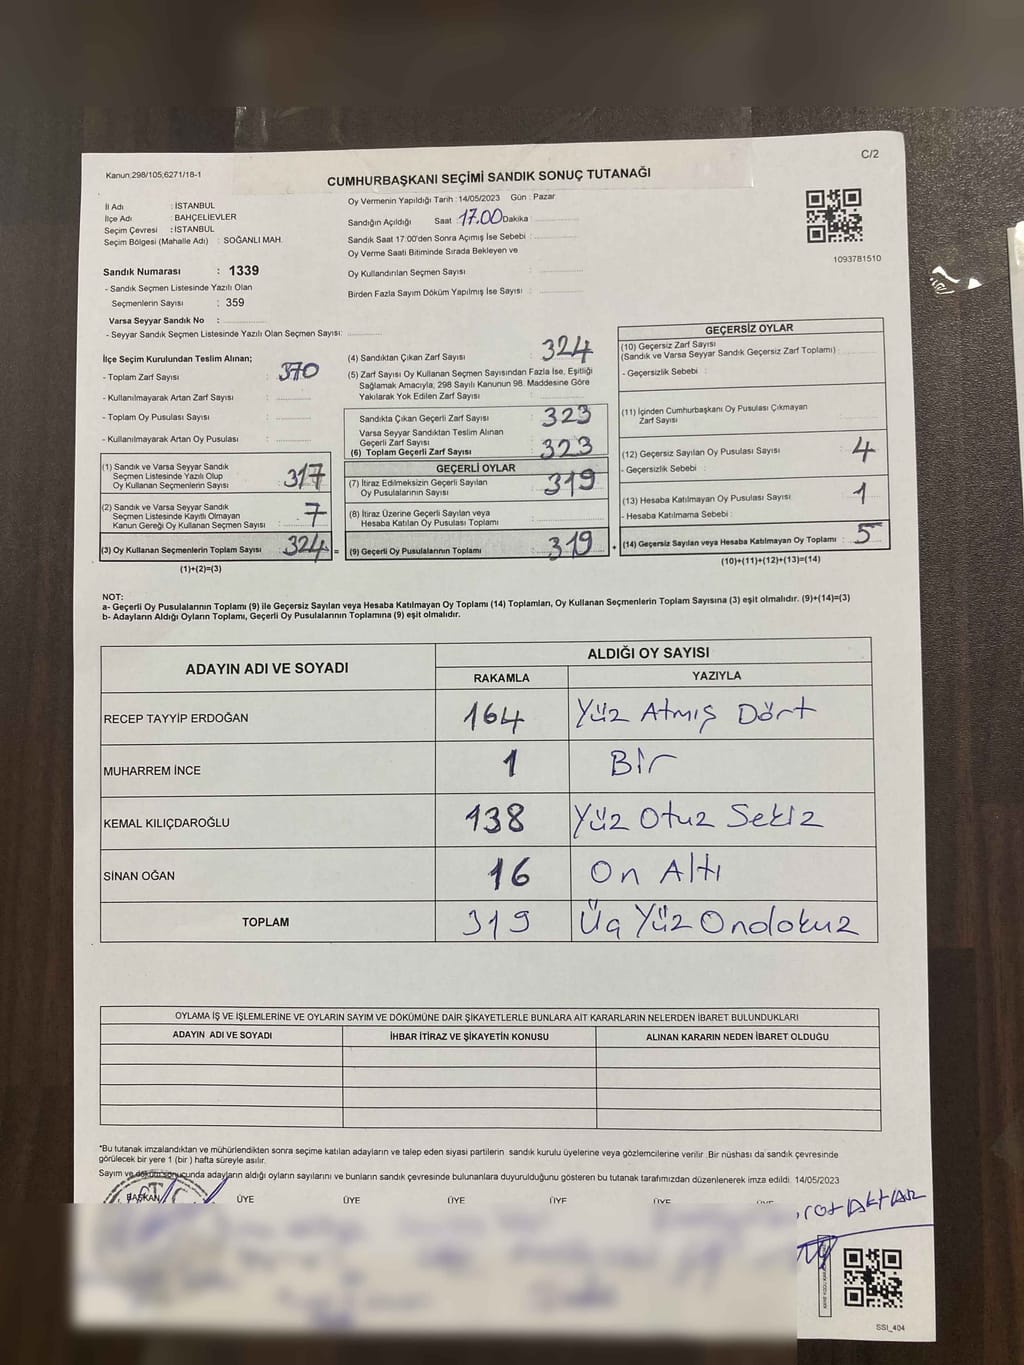 C/2
Kanun:298/105,6271/18-1
CUMHURBAŞKANI SEÇİMİ SANDIK SONUÇ TUTANAĞI
İl Adı : İSTANBUL
İlçe Adı : BAHÇELİEVLER
Seçim Çevresi : İSTANBUL
Seçim Bölgesi (Mahalle Adı) : SOĞANLI MAH.
Oy Vermenin Yapıldığı Tarih : 14/05/2023 Gün : Pazar
Sandığın Açıldığı Saat 17.00 Dakika :
Sandık Saat 17:00'den Sonra Açımış İse Sebebi :
Oy Verme Saati Bitiminde Sırada Bekleyen ve
Oy Kullandırılan Seçmen Sayısı :
Birden Fazla Sayım Döküm Yapılmış İse Sayısı :
1093781510
Sandık Numarası : 1339
- Sandık Seçmen Listesinde Yazılı Olan
Seçmenlerin Sayısı : 359
Varsa Seyyar Sandık No :
- Seyyar Sandık Seçmen Listesinde Yazılı Olan Seçmen Sayısı:
İlçe Seçim Kurulundan Teslim Alınan;
- Toplam Zarf Sayısı : 370
- Kullanılmayarak Artan Zarf Sayısı :
- Toplam Oy Pusulası Sayısı :
- Kullanılmayarak Artan Oy Pusulası :
(1) Sandık ve Varsa Seyyar Sandık
Seçmen Listesinde Yazılı Olup
Oy Kullanan Seçmenlerin Sayısı : 317
(2) Sandık ve Varsa Seyyar Sandık
Seçmen Listesinde Kayıtlı Olmayan
Kanun Gereği Oy Kullanan Seçmen Sayısı : 7
(3) Oy Kullanan Seçmenlerin Toplam Sayısı : 324 =
(1)+(2)=(3)
(4) Sandıktan Çıkan Zarf Sayısı : 324
(5) Zarf Sayısı Oy Kullanan Seçmen Sayısından Fazla İse, Eşitliği
Sağlamak Amacıyla; 298 Sayılı Kanunun 98. Maddesine Göre
Yakılarak Yok Edilen Zarf Sayısı :
Sandıkta Çıkan Geçerli Zarf Sayısı : 323
Varsa Seyyar Sandıktan Teslim Alınan
Geçerli Zarf Sayısı :
(6) Toplam Geçerli Zarf Sayısı : 323
GEÇERLİ OYLAR
(7) İtiraz Edilmeksizin Geçerli Sayılan
Oy Pusulalarının Sayısı : 319
(8) İtiraz Üzerine Geçerli Sayılan veya
Hesaba Katılan Oy Pusulası Toplamı :
(9) Geçerli Oy Pusulalarının Toplamı : 319 +
GEÇERSİZ OYLAR
(10) Geçersiz Zarf Sayısı
(Sandık ve Varsa Seyyar Sandık Geçersiz Zarf Toplamı) :
- Geçersizlik Sebebi :
(11) İçinden Cumhurbaşkanı Oy Pusulası Çıkmayan
Zarf Sayısı :
(12) Geçersiz Sayılan Oy Pusulası Sayısı : 4
- Geçersizlik Sebebi :
(13) Hesaba Katılmayan Oy Pusulası Sayısı : 1
- Hesaba Katılmama Sebebi :
(14) Geçersiz Sayılan veya Hesaba Katılmayan Oy Toplamı : 5
(10)+(11)+(12)+(13)=(14)
NOT:
a- Geçerli Oy Pusulalarının Toplamı (9) ile Geçersiz Sayılan veya Hesaba Katılmayan Oy Toplamı (14) Toplamları, Oy Kullanan Seçmenlerin Toplam Sayısına (3) eşit olmalıdır. (9)+(14)=(3)
b- Adayların Aldığı Oyların Toplamı, Geçerli Oy Pusulalarının Toplamına (9) eşit olmalıdır.
ADAYIN ADI VE SOYADI
ALDIĞI OY SAYISI
RAKAMLA YAZIYLA
RECEP TAYYİP ERDOĞAN 164 Yüz Atmış Dört
MUHARREM İNCE 1 Bir
KEMAL KILIÇDAROĞLU 138 Yüz Otuz Sekiz
SİNAN OĞAN 16 On Altı
TOPLAM 319 Üç Yüz Ondokuz
OYLAMA İŞ VE İŞLEMLERİNE VE OYLARIN SAYIM VE DÖKÜMÜNE DAİR ŞİKAYETLERLE BUNLARA AİT KARARLARIN NELERDEN İBARET BULUNDUKLARI
ADAYIN ADI VE SOYADI İHBAR İTİRAZ VE ŞİKAYETİN KONUSU ALINAN KARARIN NEDEN İBARET OLDUĞU
*Bu tutanak imzalandıktan ve mühürlendikten sonra seçime katılan adayların ve talep eden siyasi partilerin sandık kurulu üyelerine veya gözlemcilerine verilir. Bir nüshası da sandık çevresinde
görülecek bir yere 1 (bir ) hafta süreyle asılır.
Sayım ve döküm sonucunda adayların aldığı oyların sayılarını ve bunların sandık çevresinde bulunanlara duyurulduğunu gösteren bu tutanak tarafımızdan düzenlenerek imza edildi. 14/05/2023
BAŞKAN ÜYE ÜYE ÜYE ÜYE ÜYE ÜYE
AKTAR
SSI_404